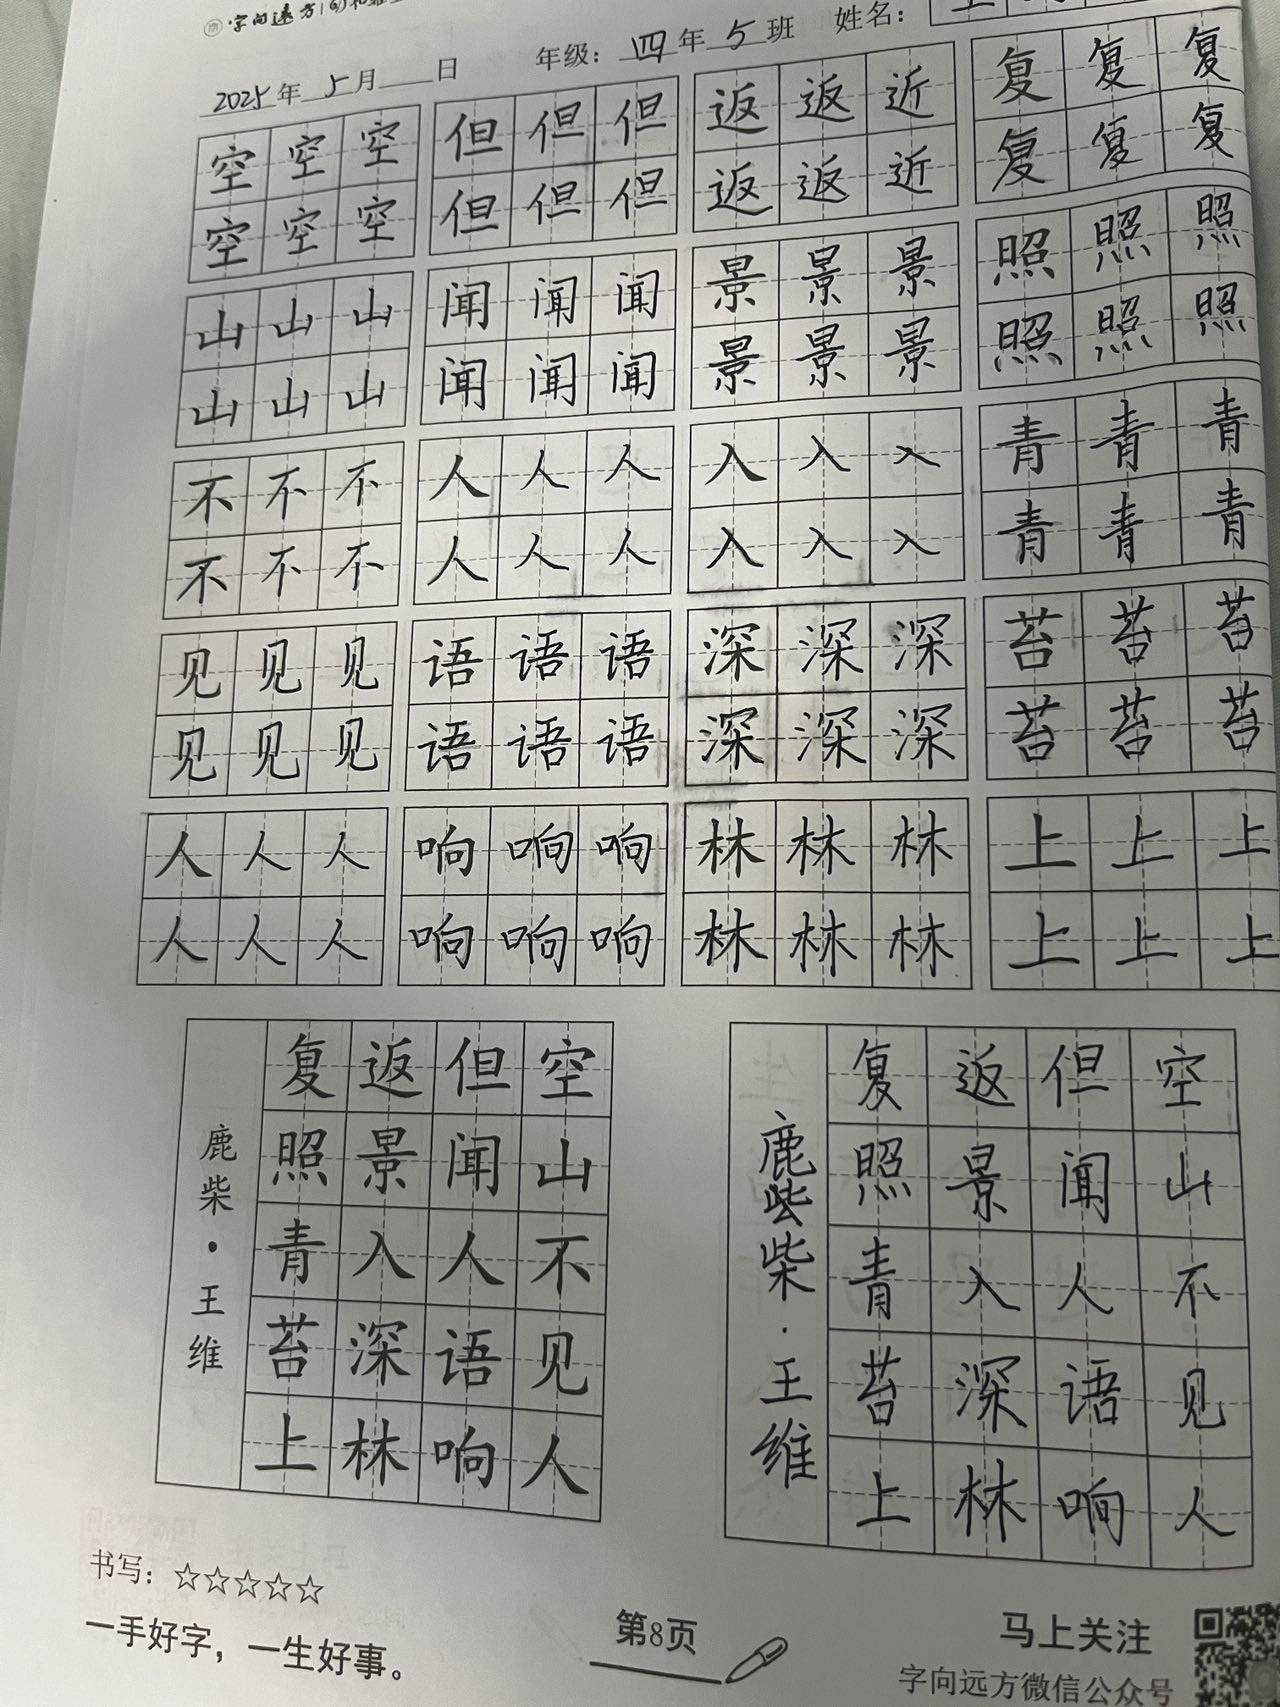 字向远方
2025年 5月 日 年级：四年5班 姓名：
空空空 但但但 返返近 复复复
空空空 但但但 返返近 复复复
山山山 闻闻闻 景景景 照照照
山山山 闻闻闻 景景景 照照照
不不不 人人人 入入入 青青青
不不不 人人人 入入入 青青青
见见见 语语语 深深深 苔苔苔
见见见 语语语 深深深 苔苔苔
人人人 响响响 林林林 上上上
人人人 响响响 林林林 上上上
空山不见人
但闻人语响
返景入深林
复照青苔上
鹿柴·王维
空山不见人
但闻人语响
返景入深林
复照青苔上
鹿柴柴·王维
书写：☆☆☆☆☆
一手好字，一生好事。
第8页
马上关注
字向远方微信公众号